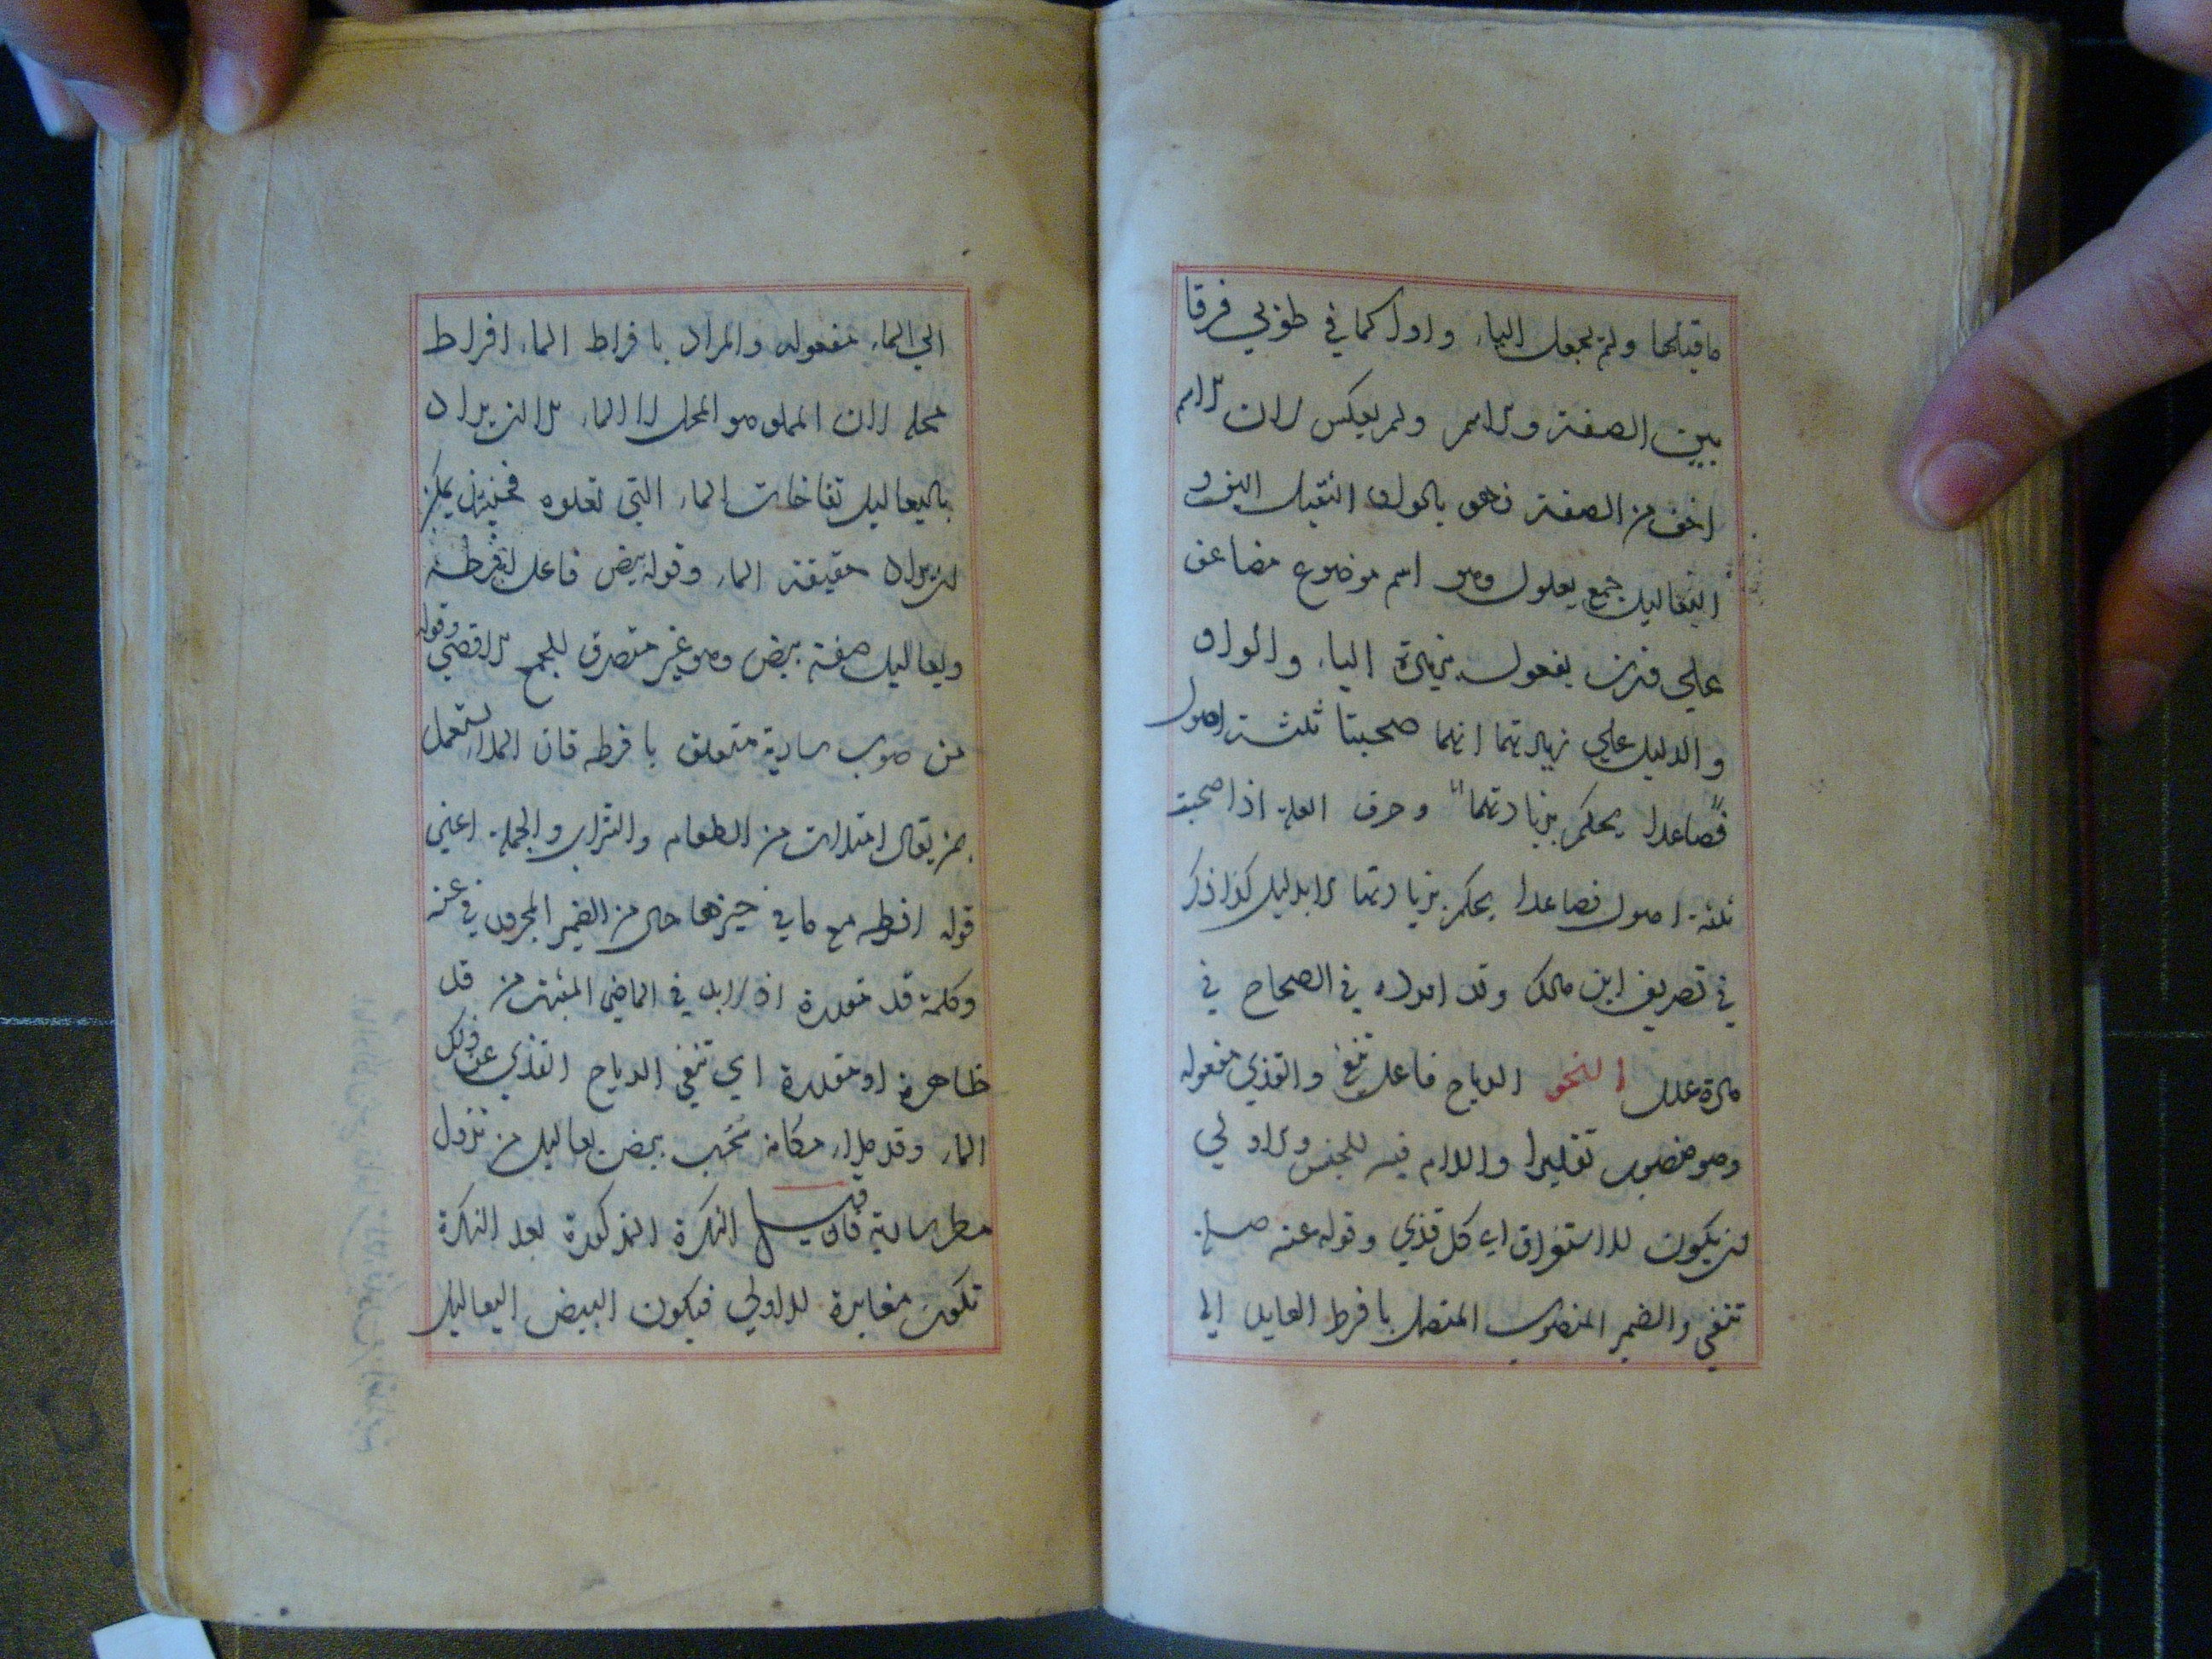 ما قبلها ولم يجعل الياء واوا كما في طوبى فرقا
بين الصفة والاسم ولم يعكس لان الاسم
اخف من الصفة فهو بالواو الثقيل اليق و
اليعاليل جمع يعلول وهو اسم موضوع مضاعف
على وزن يفعول بزيادة الياء والواو
والدليل على زيادتهما انهما صحبتا ثلثة اصول
فصاعدا يحكم بزيادتهما وحرف العلة اذا صحبت
ثلثة اصول فصاعدا يحكم بزيادتها الا بدليل كذا ذكر
في تصريف ابن مالك وقد اورده في الصحاح في
مادة علل النحو الرياح فاعل تنفي والقذى مفعوله
وهو منصوب تقديرا واللام فيه للجنس والاولى
ان يكون للاستغراق اي كل قذى وقوله عنه صلة
تنفي والضمير المنصوب المتصل بافرط العايد الى
الى الماء مفعوله والمراد بافراط الماء افراط
محله لان المملو هو المحل لا الماء الا ان يراد
باليعاليل نفاخات الماء التي تعلوه فحينئذ يمكن
ان يراد حقيقة الماء وقوله بيض فاعل افرطه
ويعاليل صفة بيض وهو غير منصرف للجمع الاقصى وقوله
من صوب سارية متعلق بافرطه فان الملأ يستعمل
بمن يقال امتلات من الطعام والشراب والجملة اعني
قوله افرطه مع ما في حيزها حال من الضمير المجرور في عنه
وكلمة قد مقدرة اذ لابد في الماضي المثبت من قد
ظاهرة او مقدرة اي تنفي الرياح القذى عن ذلك
الماء وقد ملاء مكانه سحب بيض يعاليل من نزول
مطر سارية فان قيل النكرة المذكورة بعد النكرة
تكون مغايرة للاولى فيكون البيض اليعاليل